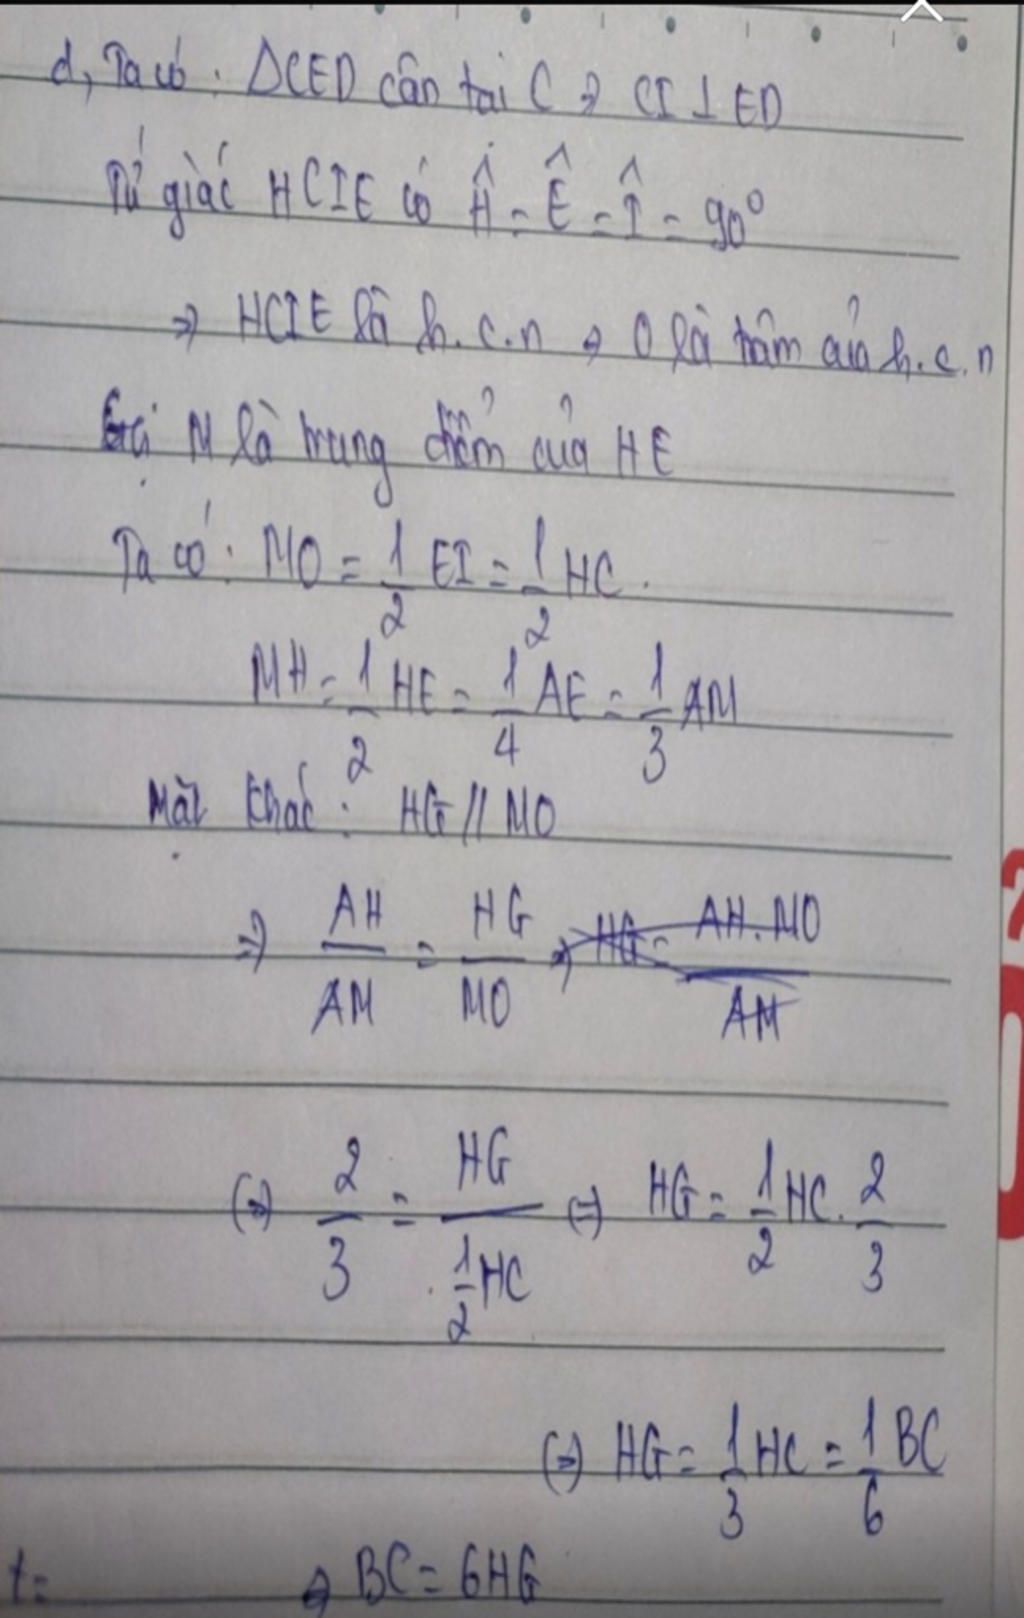 d, Ta có : ΔCED cân tại C => CI ⊥ ED
Tứ giác HCIE có Ĥ = Ê = Î = 90°
=> HCIE là h.c.n => O là tâm của h.c.n
Gọi M là trung điểm của HE
Ta có : MO = 1/2 EI = 1/2 HC .
MH = 1/2 HE = 1/4 AE = 1/3 AM
Mặt khác : HG // MO
=> AH/AM = HG/MO => HG = AH.MO/AM
(=) 2/3 = HG/(1/2 HC) (=) HG = 1/2 HC . 2/3
(=) HG = 1/3 HC = 1/6 BC
t= => BC = 6HG